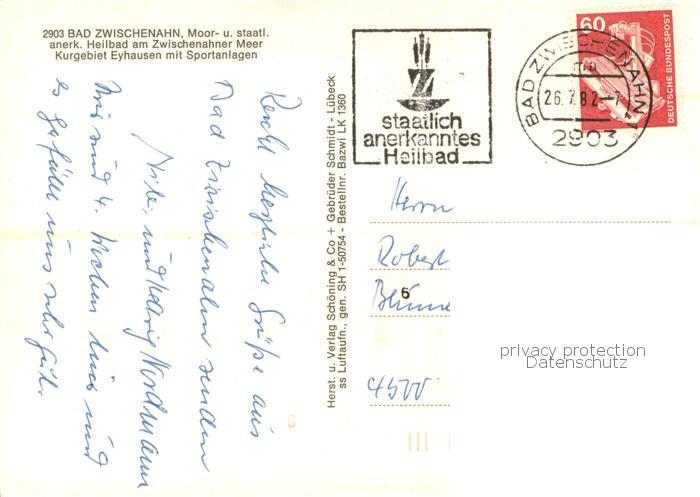 2903 BAD ZWISCHENAHN, Moor- u. staatl.
anerk. Heilbad am Zwischenahner Meer
Kurgebiet Eyhausen mit Sportanlagen
Recht herzliche Grüße aus
Bad Zwischenahn senden
und Nordmann
Wir sind 4. Wochen hier und
es gefällt uns sehr gut.
Herst. u. Verlag Schöning & Co + Gebrüder Schmidt - Lübeck
ss Luftaufn., gen. SH 1-50754 - Bestellnr. Bazwi LK 1360
Z
staatlich
anerkanntes
Heilbad
BAD ZWISCHENAHN 1
26.7.82-17
2903
60
DEUTSCHE BUNDESPOST
Herrn
Robert
6
4500
privacy protection
Datenschutz